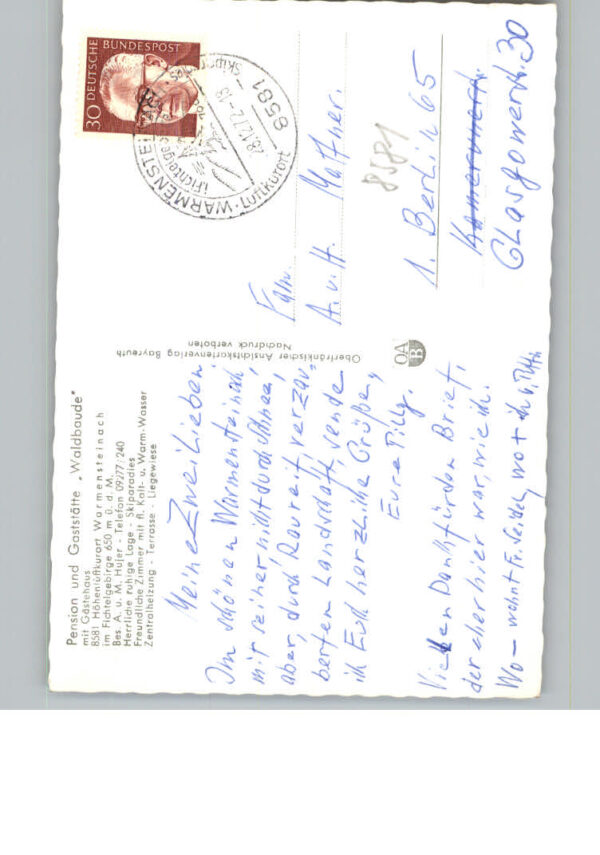 Pension und Gaststätte „Waldbaude"
mit Gästehaus
8581 Höhenluftkurort Warmensteinach
im Fichtelgebirge 650 m ü. d. M.
Bes. A. u. M. Hujer - Telefon 09277/240
Herrliche ruhige Lage - Skiparadies
Freundliche Zimmer mit fl. Kalt- u. Warm-Wasser
Zentralheizung - Terrasse - Liegewiese
Meine Zwei Lieben.
Im schönen Warmensteinach
mir seiner nicht durch Schnee,
aber, durch Raureif, verzau-
bertem Landschaft, sende
ich Euch herzliche Grüße,
Eure Tilly.
Vielen Dank für den Brief,
der eher hier war, wie ich.
Wo – wohnt Fr. Seidel, wo
Oberfränkischer Ansichtskartenverlag Bayreuth
Nachdruck verboten
OAB
30 DEUTSCHE
BUNDESPOST
WARMENSTEI
8581
28.12.72-18
Luftkurort
(Fichtelgeb
Fam.
A. u. H.
8581
1. Berlin 65
Glasgowerstr. 30